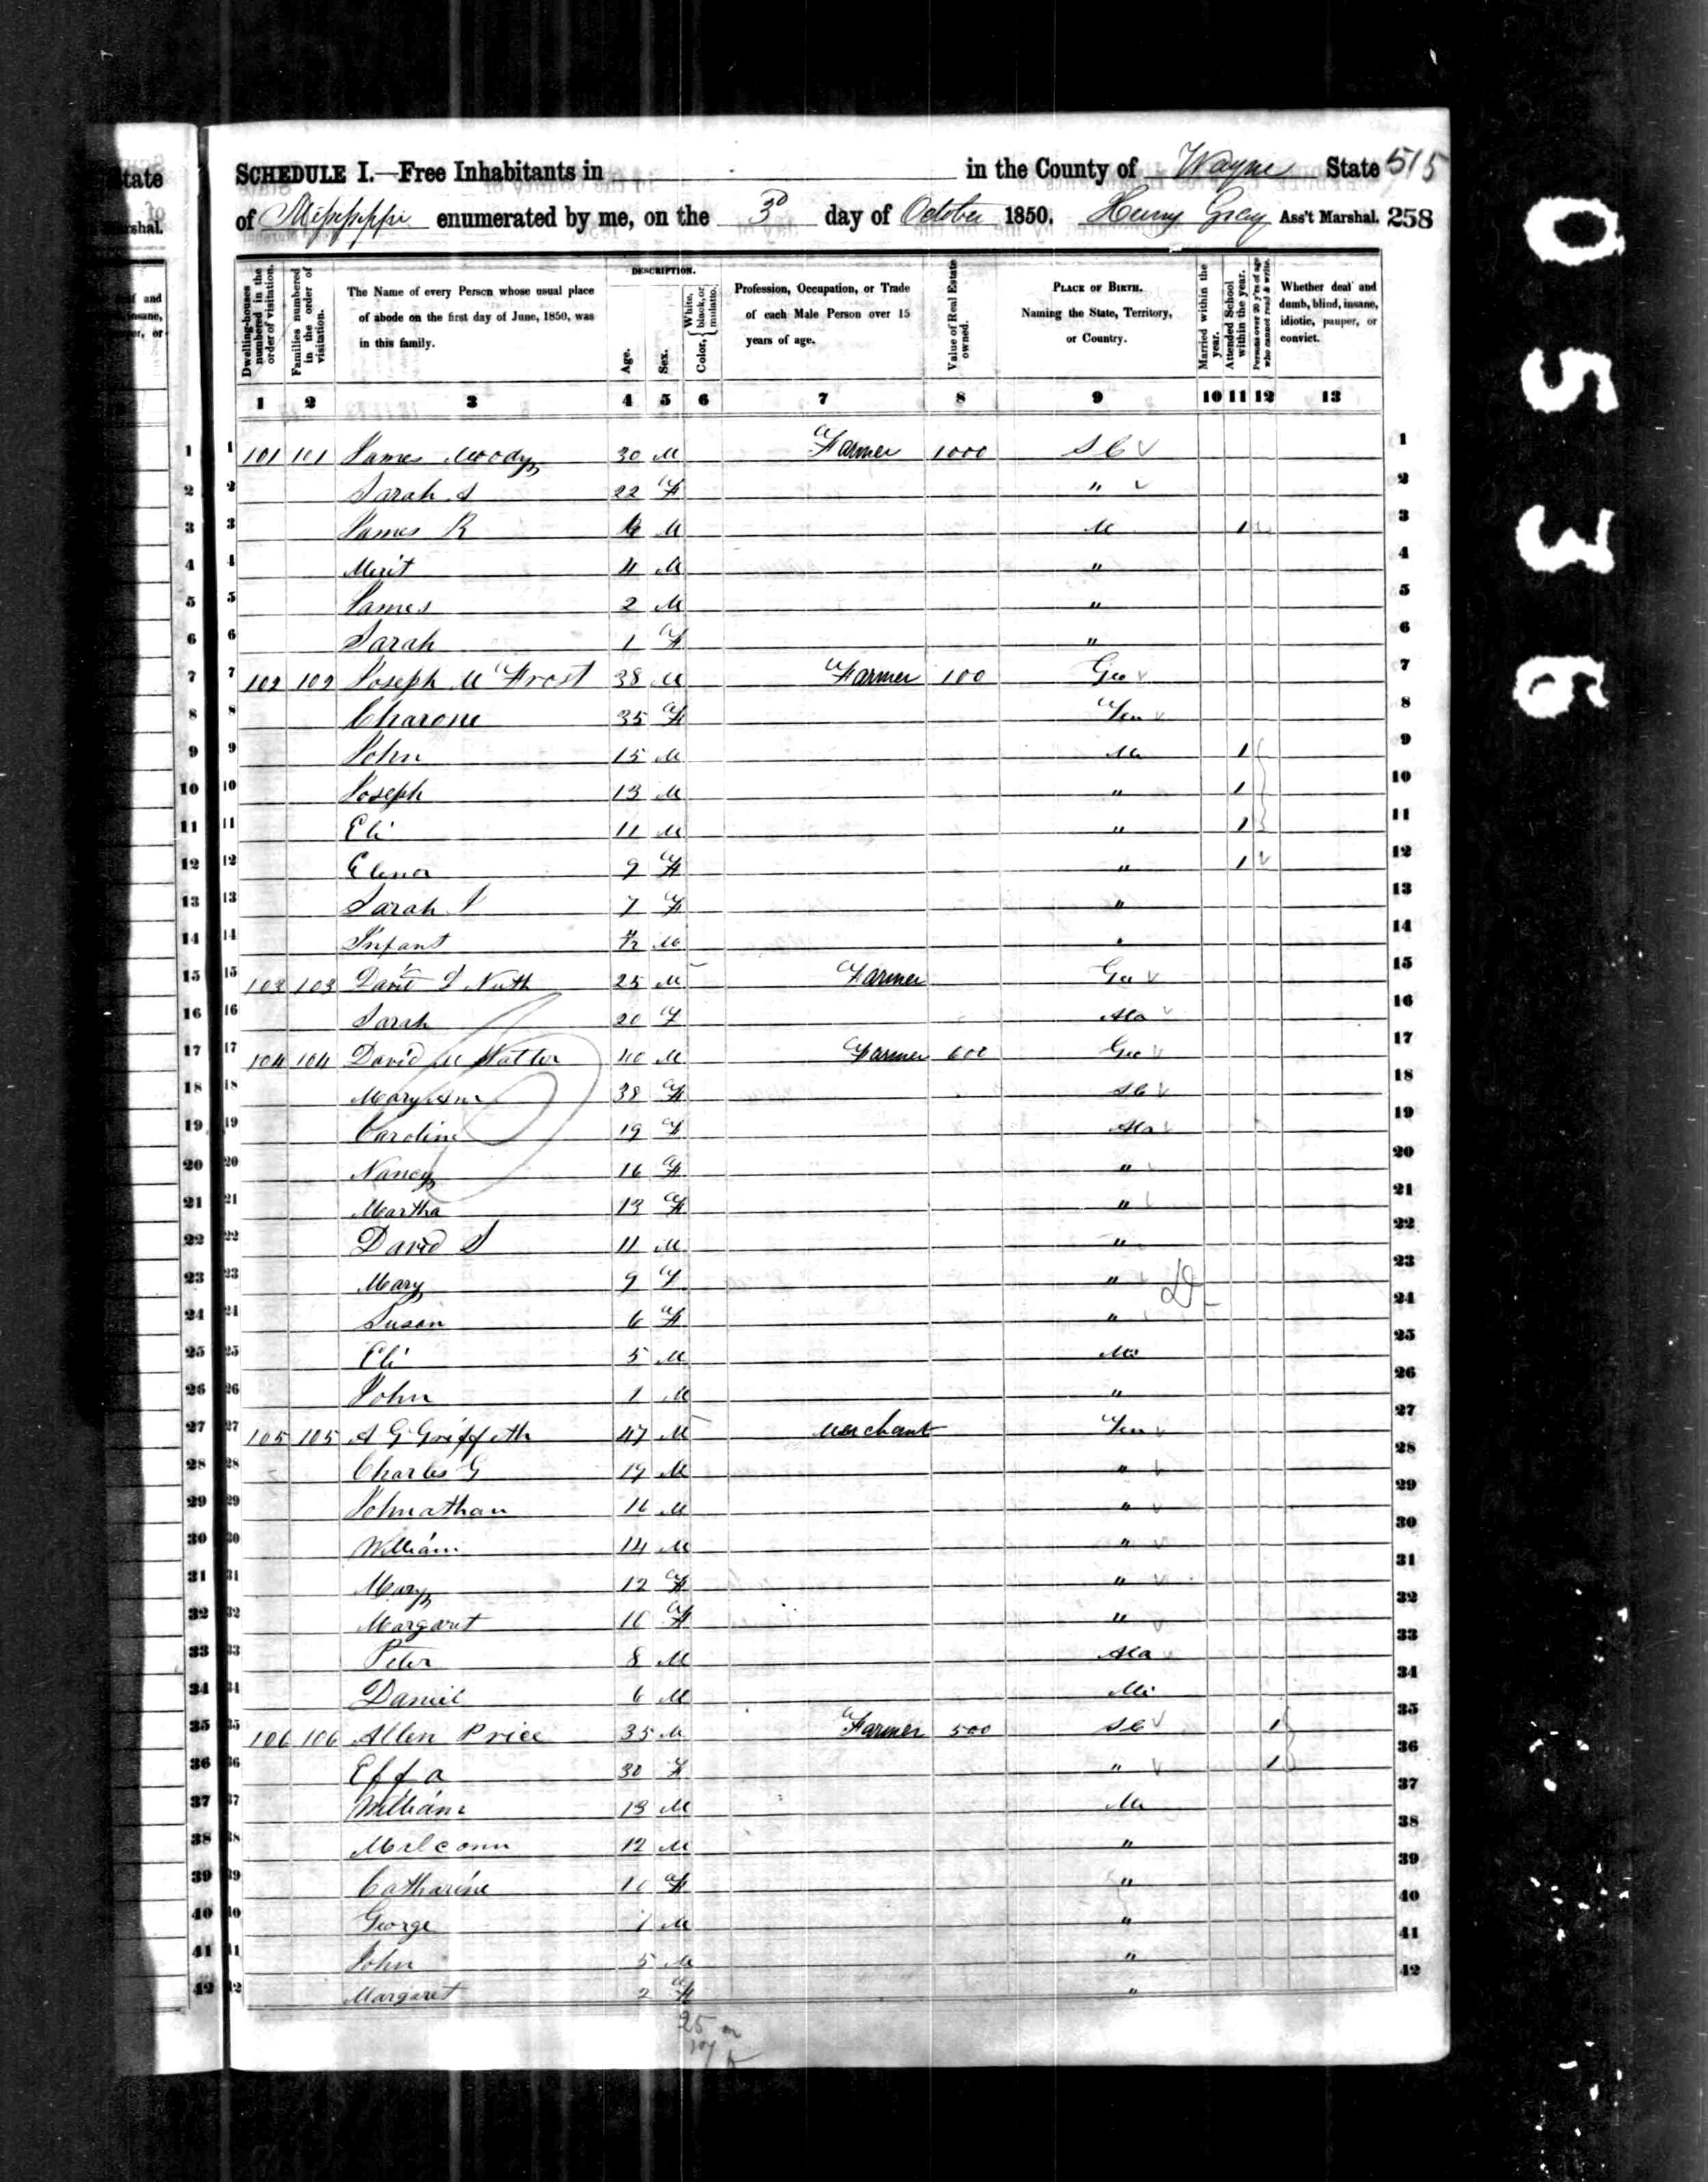 SCHEDULE I.—Free Inhabitants in in the County of Wayne State 515
of Mississippi enumerated by me, on the 3d day of October 1850. Henry Gray Ass't Marshal. 258
Dwelling-houses numbered in the order of visitation. Families numbered in the order of visitation. The Name of every Person whose usual place of abode on the first day of June, 1850, was in this family. DESCRIPTION. Age. Sex. Color, { White, black, or mulatto. Profession, Occupation, or Trade of each Male Person over 15 years of age. Value of Real Estate owned. PLACE OF BIRTH. Naming the State, Territory, or Country. Married within the year. Attended School within the year. Persons over 20 y'rs of age who cannot read & write. Whether deaf and dumb, blind, insane, idiotic, pauper, or convict.
1 2 3 4 5 6 7 8 9 10 11 12 13
1 101 101 James Moody 30 M Farmer 1000 S C 1
2 Sarah S 22 F " 2
3 James R 6 M Mi 1 3
4 Merit 4 M " 4
5 James 2 M " 5
6 Sarah 1 F " 6
7 102 102 Joseph M Frost 38 M Farmer 100 Geo 7
8 Charone 35 F Ten 8
9 John 15 M Mi 1 9
10 Joseph 13 M " 1 10
11 Eli 11 M " 1 11
12 Elenor 9 F " 1 12
13 Sarah J 7 F " 13
14 Infant M " 14
15 103 103 David S 25 M Farmer Geo 15
16 Sarah 20 F Ala 16
17 104 104 David M 40 M Farmer 600 Geo 17
18 Mary Ann 38 F S C 18
19 Caroline 19 F Ala 19
20 Nancy 16 F " 20
21 Martha 13 F " 21
22 David S 11 M " 22
23 Mary 9 F " 23
24 Susan 6 F " 24
25 Eli 5 M Mi 25
26 John 1 M " 26
27 105 105 A G Griffeth 47 M Merchant Ten 27
28 Charles G 19 M " 28
29 Johnathan 16 M " 29
30 William 14 M " 30
31 Mary 12 F " 31
32 Margaret 10 F " 32
33 Peter 8 M Ala 33
34 Daniel 6 M Mi 34
35 106 106 Allen Price 35 M Farmer 500 S C 1 35
36 Effa 30 F " 1 36
37 William 13 M Mi 37
38 Malcomn 12 M " 38
39 Catharine 10 F " 39
40 George 7 M " 40
41 John 5 M " 41
42 Margaret 2 F " 42
25 m
0536